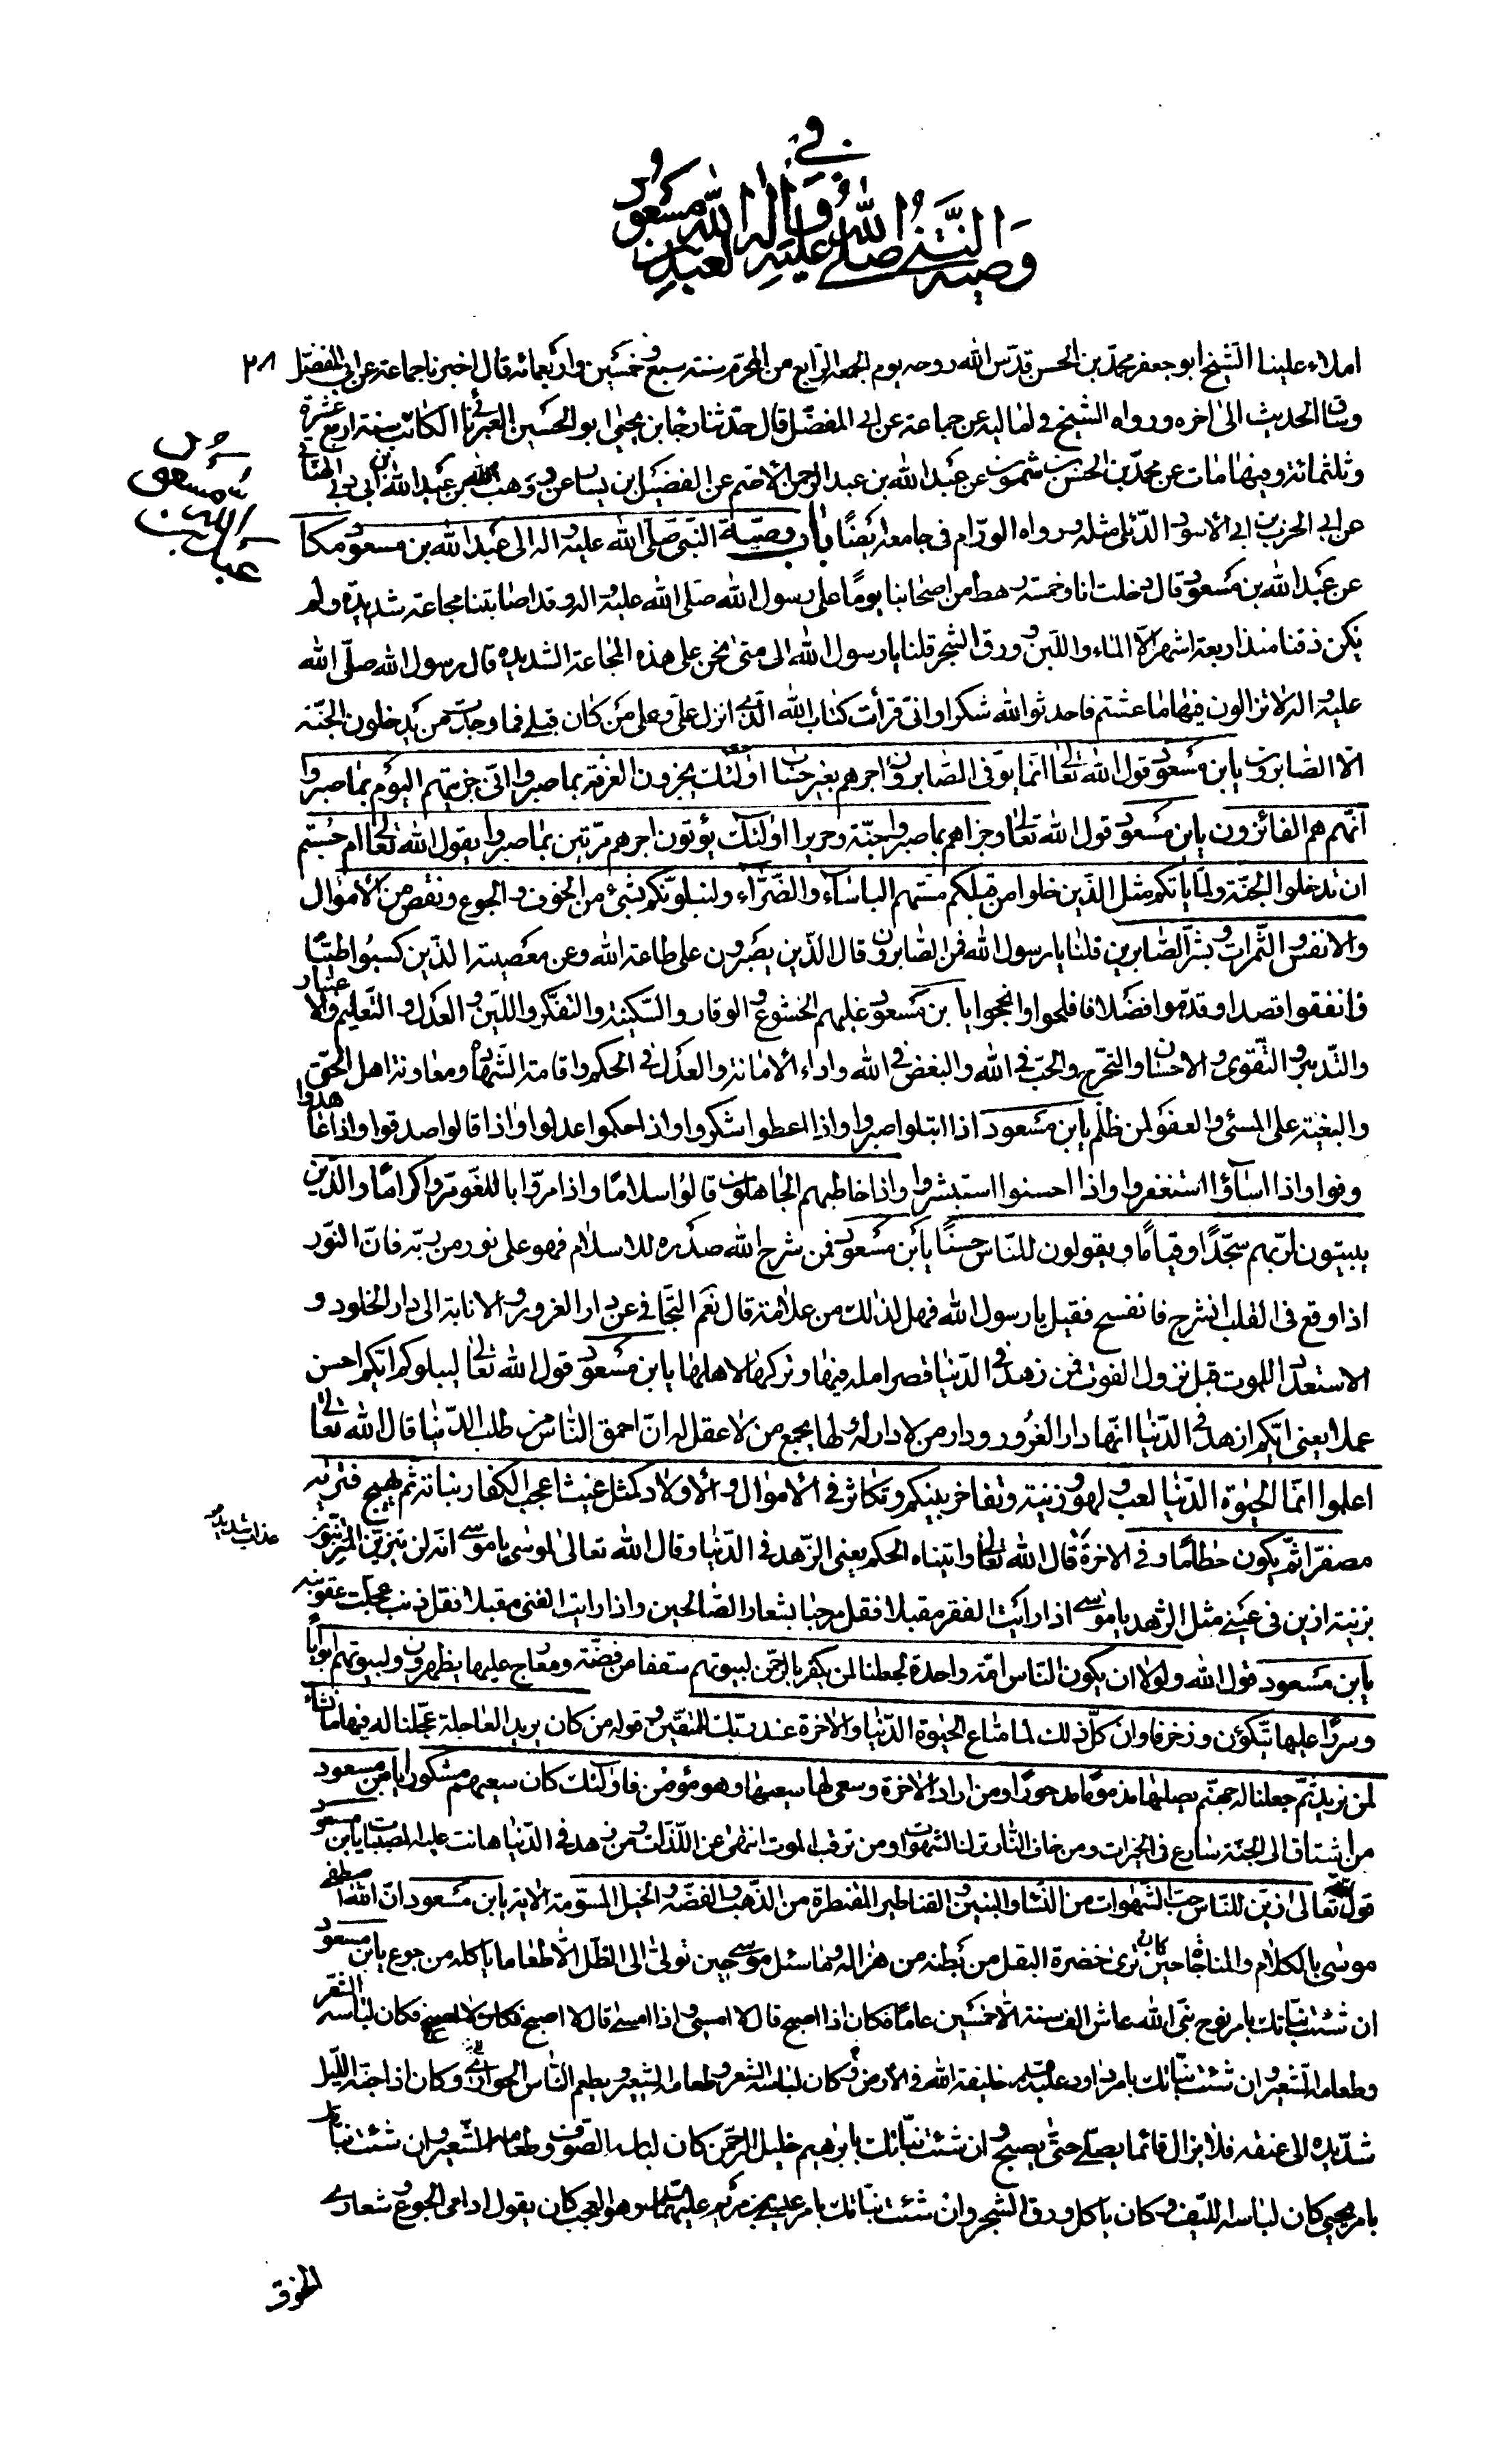 في
وصية النبي صلى الله عليه واله لعبد الله بن مسعود
املاء علينا الشيخ ابو جعفر محمد بن الحسن قدس الله روحه يوم الجمعة الرابع من المحرم سنة سبع و خمسين واربعمائه قال اخبرنا جماعة عن ابي المفضل ٢٨
وساق الحديث الى اخره ورواه الشيخ في اماليه عن جماعة عن ابي المفضل قال حدثنا رجا بن يحيى ابو الحسين العبرتائي الكاتب سنة اربع عشرة
وثلثمائة وفيها مات عن محمد بن الحسن بن شمون عن عبد الله بن عبد الرحمن الاصم عن الفضيل بن يسار عن وهب بن عبد الله بن ابي دبي الهنائي
عن ابي الحرب بن ابي الاسود الدئلي مثله ورواه الورام في جامعه ايضا باب وصية النبي صلى الله عليه واله الى عبد الله بن مسعود مكا
باب
عبد الله بن مسعود
عن عبد الله بن مسعود قال دخلت انا وخمسة رهط من اصحابنا يوما على رسول الله صلى الله عليه واله وقد اصابتنا مجاعة شديدة ولم
يكن ذقنا منذ اربعة اشهر الا الماء واللبن و ورق الشجر قلنا يا رسول الله الى متى نحن على هذه المجاعة الشديده قال رسول الله صلى الله
عليه واله لا تزالون فيها ما عشتم فاحدثوا لله شكرا واني قرأت كتاب الله الذي انزل علي وعلى من كان قبلي فما وجدت من يدخلون الجنة
الا الصابرون يابن مسعود قول الله تعالى انما يوفى الصابرون اجرهم بغير حساب اولئك يجزون الغرفة بما صبروا اني جزيتهم اليوم بما صبروا
انهم هم الفائزون يابن مسعود قول الله تعالى وجزاهم بما صبروا جنة وحريرا اولئك يؤتون اجرهم مرتين بما صبروا يقول الله تعالى ام حسبتم
ان تدخلوا الجنة ولما ياتكم مثل الذين خلوا من قبلكم مستهم الباساء والضراء ولنبلونكم بشئ من الخوف والجوع ونقص من الاموال
والانفس والثمرات وبشر الصابرين قلنا يا رسول الله فمن الصابرون قال الذين يصبرون على طاعة الله وعن معصيته الذين كسبوا طيبا
وانفقوا قصدا وقدموا فضلا فافلحوا وانجحوا يابن مسعود عليهم الخشوع و الوقار والسكينة والتفكر واللين والعدل والتعليم والاعتبار
والتدبير والتقوى والاحسان والتحرج والحب في الله والبغض في الله واداء الامانة والعدل في الحكم واقامة الشهادة ومعاونة اهل الحق
والبغية على المسئ والعفو لمن ظلم يابن مسعود اذا ابتلوا صبروا واذا اعطوا شكروا واذا حكموا عدلوا واذا قالوا صدقوا واذا عاهدوا
وفوا واذا اساؤا استغفروا واذا احسنوا استبشروا واذا خاطبهم الجاهلون قالوا سلاما واذا مروا باللغو مروا كراما والذين
يبيتون لربهم سجدا وقياما ويقولون للناس حسنا يابن مسعود فمن شرح الله صدره للاسلام فهو على نور من ربه فان النور
اذا وقع في القلب انشرح فانفسح فقيل يا رسول الله فهل لذلك من علامة قال نعم التجافي عن دار الغرور والانابة الى دار الخلود و
الاستعداد للموت قبل نزول الفوت فمن زهد في الدنيا قصر امله فيها وتركها لاهلها يابن مسعود قول الله تعالى ليبلوكم ايكم احسن
عملا يعني ايكم ازهد في الدنيا انها دار الغرور ودار من لا دار له ولها يجمع من لا عقل له ان احمق الناس من طلب الدنيا قال الله تعالى
اعلموا انما الحيوة الدنيا لعب و لهو و زينة وتفاخر بينكم وتكاثر في الاموال والاولاد كمثل غيث اعجب الكفار نباته ثم يهيج فتريه
مصفرا ثم يكون حطاما وفي الاخرة قال الله تعالى واتيناه الحكم يعني الزهد في الدنيا وقال الله تعالى لموسى يا موسى انه لن يتزين المتزينون
عذاب شديد
بزينة ازين في عيني مثل الزهد يا موسى اذا رايت الفقر مقبلا فقل مرحبا بشعار الصالحين واذا رايت الغنى مقبلا فقل ذنب عجلت عقوبته
يابن مسعود قول الله ولولا ان يكون الناس امة واحدة لجعلنا لمن يكفر بالرحمن لبيوتهم سقفا من فضة ومعارج عليها يظهرون ولبيوتهم ابوابا
وسررا عليها يتكؤن وزخرفا وان كل ذلك لما متاع الحيوة الدنيا والاخرة عند ربك للمتقين و قوله من كان يريد العاجلة عجلنا له فيها ما نشاء
لمن نريد ثم جعلنا له جهنم يصليها مذموما مدحورا ومن اراد الاخرة وسعى لها سعيها وهو مؤمن فاولئك كان سعيهم مشكورا يابن مسعود
من اشتاق الى الجنة سارع في الخيرات ومن خاف النار ترك الشهوات ومن ترقب الموت انتهى عن اللذات ومن زهد في الدنيا هانت عليه المصيبات يابن مسعود
قول الله تعالى زين للناس حب الشهوات من النساء والبنين والقناطير المقنطرة من الذهب والفضة والخيل المسومة الاية يابن مسعود ان الله اصطفى
موسى بالكلام والمناجاة حين كان يرى خضرة البقل من بطنه من هزاله وما سئل موسى حين تولى الى الظل الا طعاما ياكله من جوع يابن مسعود
ان شئت نباتك بامر نوح نبي الله عاش الف سنة الا خمسين عاما فكان اذا اصبح قال لا امسي و اذا امسى قال لا اصبح فكان لباسه الشعر
وطعامه الشعير وان شئت نباتك بامر داود عليه خليفة الله في الارض وكان لباسه الشعر وطعامه الشعير ويطعم الناس الحوارى وكان اذا جنه الليل
شد يده الى عنقه فلا يزال قائما يصلي حتى يصبح و ان شئت نباتك بابرهيم خليل الرحمن كان لباسه الصوف وطعامه الشعير وان شئت نباتك
بامر يحيى كان لباسه الليف وكان ياكل ورق الشجر وان شئت نباتك بامر عيسى بن مريم عليهما وهو العجب كان يقول ادامي الجوع و شعاري
الخوف